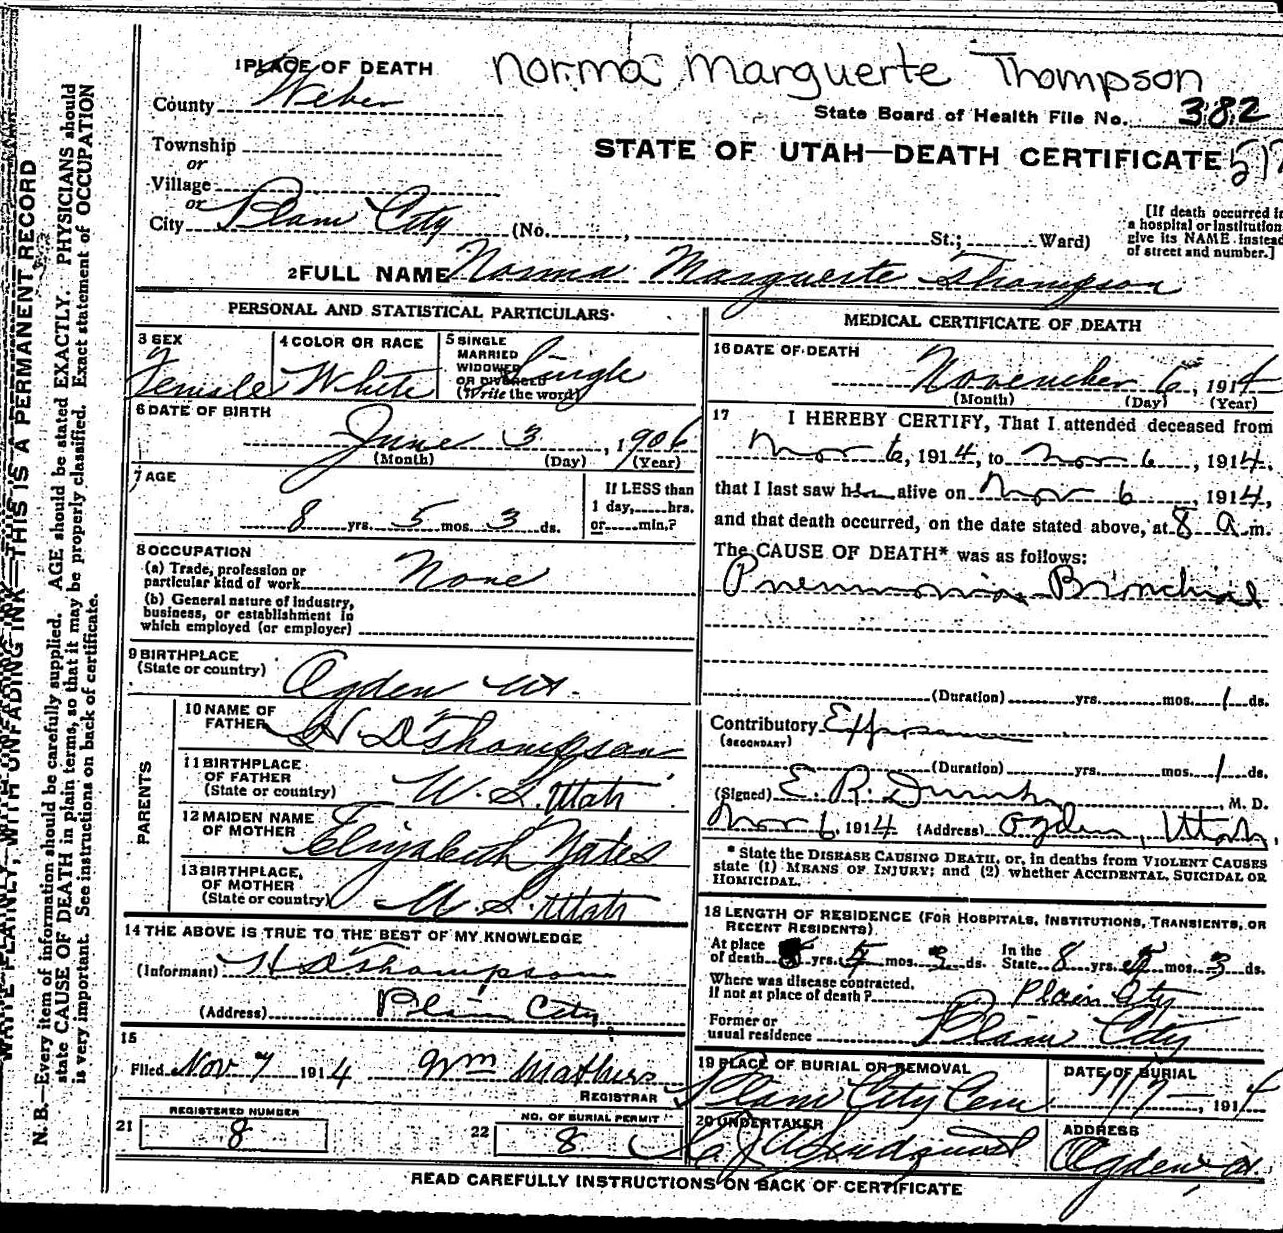 Norma Marguerte Thompson
1 PLACE OF DEATH
County Weber
State Board of Health File No. 382
Township
STATE OF UTAH—DEATH CERTIFICATE
or
Village
or
City Plain City (No. , St.; Ward)
[If death occurred in
a hospital or institution
give its NAME instead
of street and number.]
2 FULL NAME Norma Marguerte Thompson
PERSONAL AND STATISTICAL PARTICULARS
3 SEX
Female
4 COLOR OR RACE
White
5 SINGLE
MARRIED
WIDOWED
OR DIVORCED
(Write the word)
Single
6 DATE OF BIRTH
June 3, 1906
(Month) (Day) (Year)
7 AGE
8 yrs. 5 mos. 3 ds.
If LESS than
1 day, hrs.
or min.?
8 OCCUPATION
(a) Trade, profession or
particular kind of work None
(b) General nature of industry,
business, or establishment in
which employed (or employer)
9 BIRTHPLACE
(State or country) Ogden Ut.
PARENTS
10 NAME OF
FATHER H D Thompson
11 BIRTHPLACE
OF FATHER
(State or country) Utah
12 MAIDEN NAME
OF MOTHER Elizabeth Yates
13 BIRTHPLACE,
OF MOTHER
(State or country) Utah
14 THE ABOVE IS TRUE TO THE BEST OF MY KNOWLEDGE
(Informant) H D Thompson
(Address) Plain City
15
Filed Nov 7 1914 Wm Mathers
REGISTRAR
21 REGISTERED NUMBER
8
22 NO. OF BURIAL PERMIT
8
MEDICAL CERTIFICATE OF DEATH
16 DATE OF DEATH
November 6, 1914
(Month) (Day) (Year)
17 I HEREBY CERTIFY, That I attended deceased from
Nov 6, 1914, to Nov 6, 1914,
that I last saw her alive on Nov 6, 1914,
and that death occurred, on the date stated above, at 8 a.m.
The CAUSE OF DEATH* was as follows:
Pneumonia Bronchial
(Duration) yrs. mos. 1 ds.
Contributory
(SECONDARY)
(Duration) yrs. mos. 1 ds.
(Signed) E. R. , M. D.
Nov 6, 1914 (Address) Ogden, Utah,
* State the DISEASE CAUSING DEATH, or, in deaths from VIOLENT CAUSES
state (1) MEANS OF INJURY; and (2) whether ACCIDENTAL, SUICIDAL OR
HOMICIDAL.
18 LENGTH OF RESIDENCE (FOR HOSPITALS, INSTITUTIONS, TRANSIENTS, OR
RECENT RESIDENTS)
At place
of death yrs. mos. 3 ds.
In the
State 8 yrs. 5 mos. 3 ds.
Where was disease contracted,
if not at place of death? Plain City
Former or
usual residence Plain City
19 PLACE OF BURIAL OR REMOVAL
Plain City Cem
DATE OF BURIAL
11/7, 1914
20 UNDERTAKER
Lindquist
ADDRESS
Ogden
READ CAREFULLY INSTRUCTIONS ON BACK OF CERTIFICATE
WRITE PLAINLY, WITH UNFADING INK—THIS IS A PERMANENT RECORD
N. B.—Every item of information should be carefully supplied. AGE should be stated EXACTLY. PHYSICIANS should
state CAUSE OF DEATH in plain terms, so that it may be properly classified. Exact statement of OCCUPATION
is very important. See instructions on back of certificate.